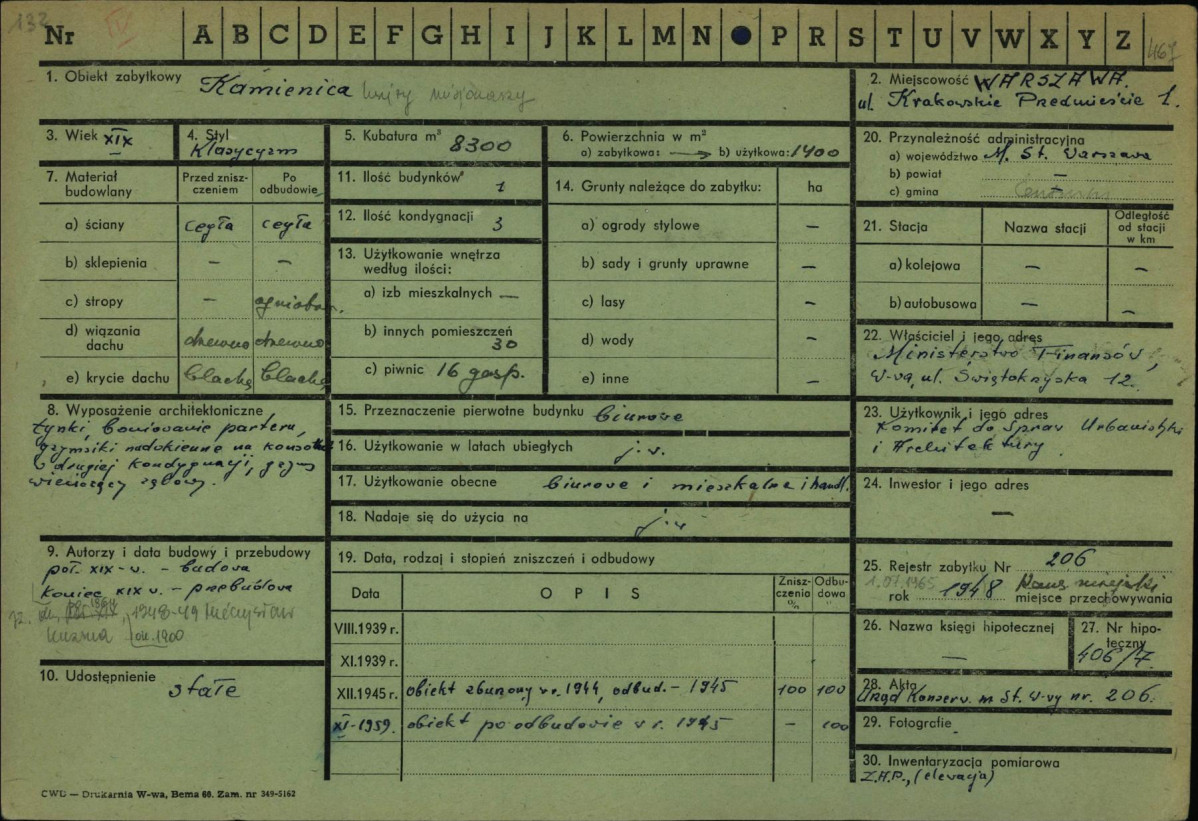 132
Nr A B C D E F G H I J K L M N P R S T U V W X Y Z
467
1. Obiekt zabytkowy Kamienica
2. Miejscowość WARSZAWA.
ul. Krakowskie Przedmieście 1.
3. Wiek XIX
4. Styl
Klasycyzm
5. Kubatura m³ 8300
6. Powierzchnia w m²
a) zabytkowa: → b) użytkowa: 1400
20. Przynależność administracyjna
a) województwo M. St. Warszawa
b) powiat —
c) gmina —
7. Materiał budowlany
Przed zniszczeniem
Po odbudowie
a) ściany cegła cegła
b) sklepienia – –
c) stropy –
d) wiązania dachu drewno drewno
e) krycie dachu blacha blacha
11. Ilość budynków 1
12. Ilość kondygnacji 3
13. Użytkowanie wnętrza
według ilości:
a) izb mieszkalnych —
b) innych pomieszczeń
30
c) piwnic 16 gosp.
14. Grunty należące do zabytku: ha
a) ogrody stylowe –
b) sady i grunty uprawne –
c) lasy –
d) wody –
e) inne –
21. Stacja Nazwa stacji Odległość od stacji w km
a) kolejowa — –
b) autobusowa — –
22. Właściciel i jego adres
Ministerstwo Finansów,
W-wa, ul. Świętokrzyska 12.
8. Wyposażenie architektoniczne
tynki, boniowanie parteru,
gzymsiki nadokienne na
drugiej kondygnacji, gzyms
wieńczący
15. Przeznaczenie pierwotne budynku biurowe
16. Użytkowanie w latach ubiegłych j.w.
17. Użytkowanie obecne biurowe i mieszkalne i handl.
18. Nadaje się do użycia na j.w.
23. Użytkownik i jego adres
Komitet do Spraw Urbanistyki
i Architektury
24. Inwestor i jego adres
—
9. Autorzy i data budowy i przebudowy
poł. XIX-w. – budowa
koniec XIX w. – przebudowa
1948-49 Mieczysław
Kuzma ok. 1900
10. Udostępnienie
stałe
19. Data, rodzaj i stopień zniszczeń i odbudowy
Data OPIS Zniszczenia % Odbudowa "
VIII.1939 r.
XI.1939 r.
XII.1945 r. obiekt zburzony w r. 1944, odbud. – 1945 100 100
XI-1959. obiekt po odbudowie w r. 1945 – 100
25. Rejestr zabytku Nr 206
1.07.1965
rok 1948
miejsce przechowywania
26. Nazwa księgi hipotecznej
—
27. Nr hipoteczny
406/7.
28. Akta
Urząd Konserw. m St. W-wy nr. 206.
29. Fotografie
30. Inwentaryzacja pomiarowa
Z.A.P., (elewacja)
CWD — Drukarnia W-wa, Bema 60. Zam. nr 349-5162